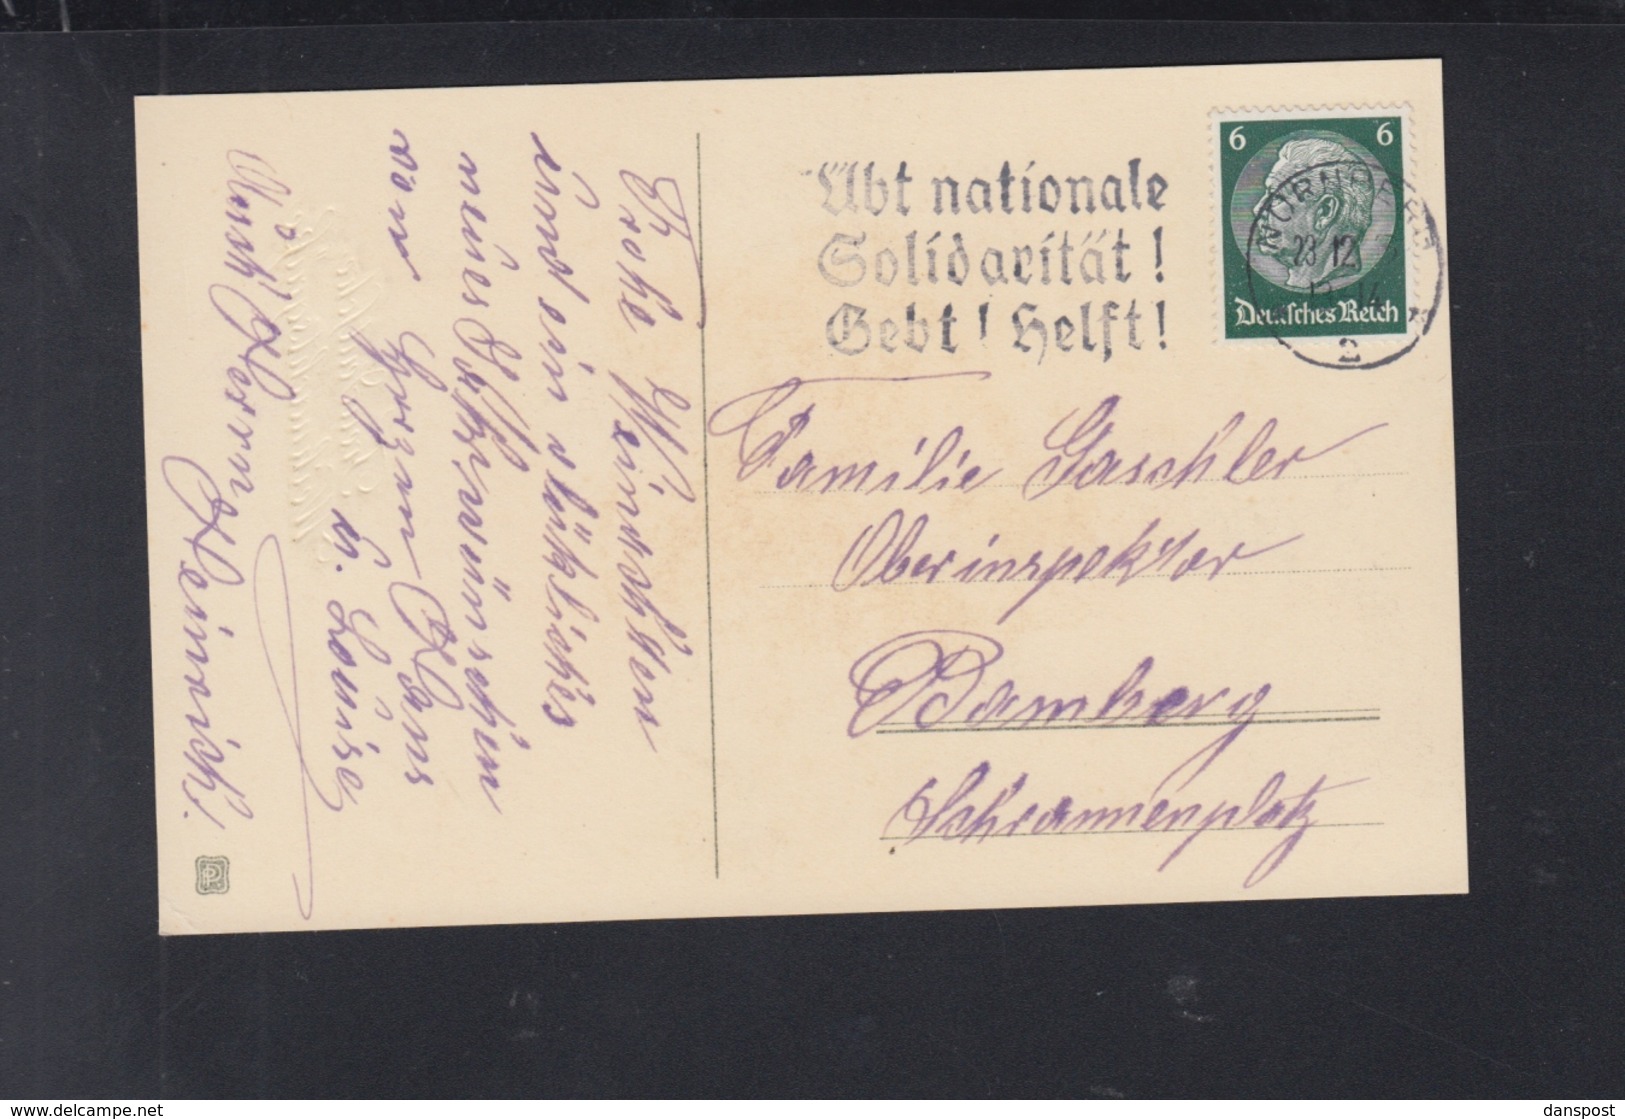 Frohe Weihnachten
und ein glückliches
neues Jahr wünschen
von Herzen Hans
u. Louise
Auch Hermann
Heinrich!
Übt nationale
Solidarität!
Gebt! Helft!
6 6
Deutsches Reich
NÜRNBERG
23 12
2
Familie Gaschler
Oberinspektor
Bamberg
Schrannenplatz
www.delcampe.net
danspost